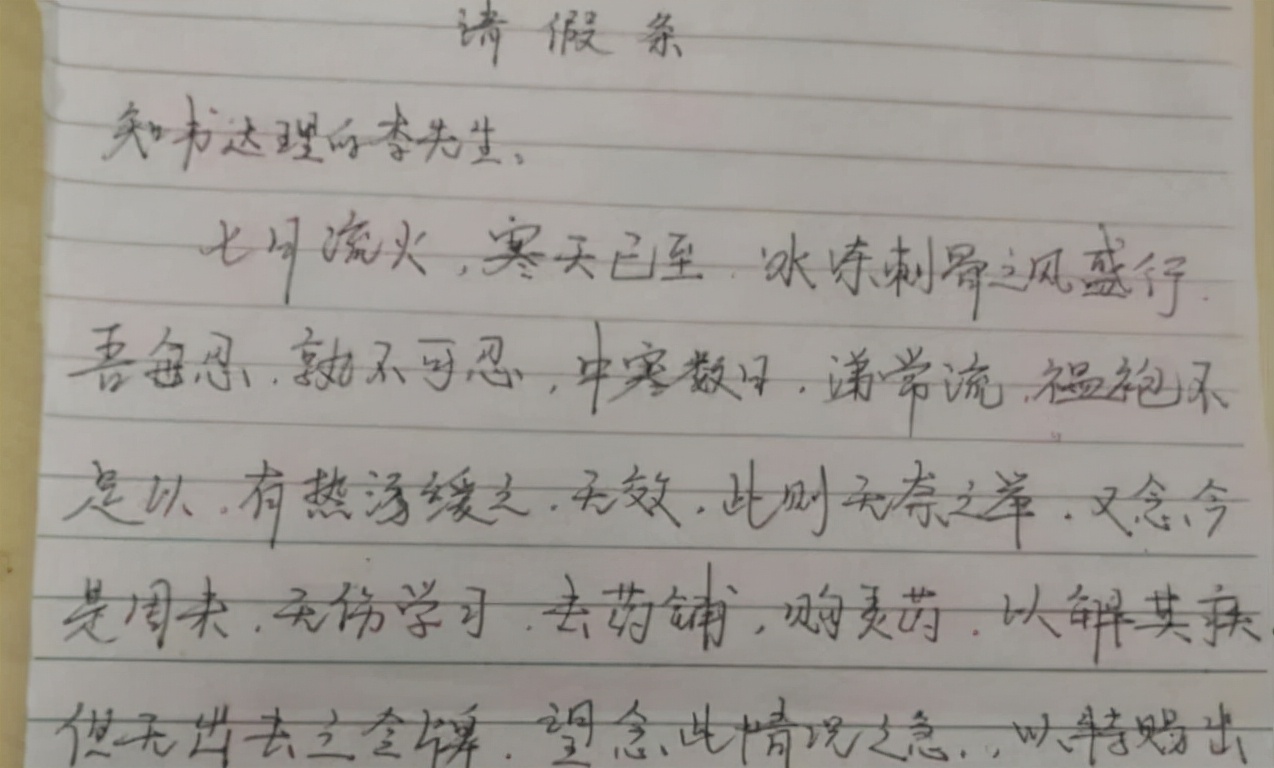 请假条
知书达理的李先生。
七月流火，寒天已至.冰冻刺骨之风盛行.
吾每忍.孰不可忍，中寒数日.涕常流.褞袍不
足以.有热汤缓之.无效.此则无奈之举.又念今
是周末.无伤学习.去药铺，购灵药.以解其疾.
但无出去之令牌.望念此情况之急..以特赐出